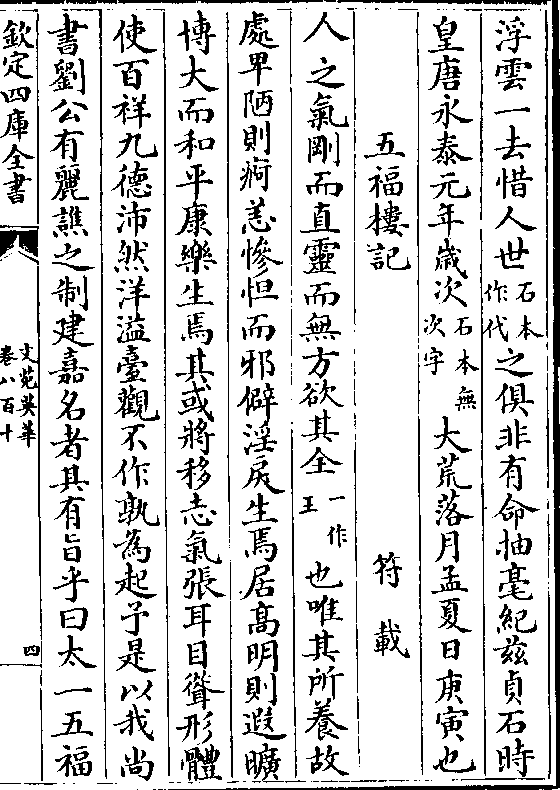 浮雲一去惜人世石本作代之俱非有命抽毫紀兹貞石時
皇唐永泰元年歲次石本無次字大荒落月孟夏日庚寅也
五福樓記　符載
人之氣剛而直靈而無方欲其全一作王也唯其所養故
處卑陋則痾恙慘怛而邪僻淫戾生焉居髙明則遐曠
博大而和平康樂生焉其或將移志氣張耳目聳形體
使百祥九德沛然洋溢臺觀不作孰為起予是以我尚
書劉公有麗譙之制建嘉名者其有旨乎曰太一五福
欽定四庫全書
文苑英華
卷八百十
四